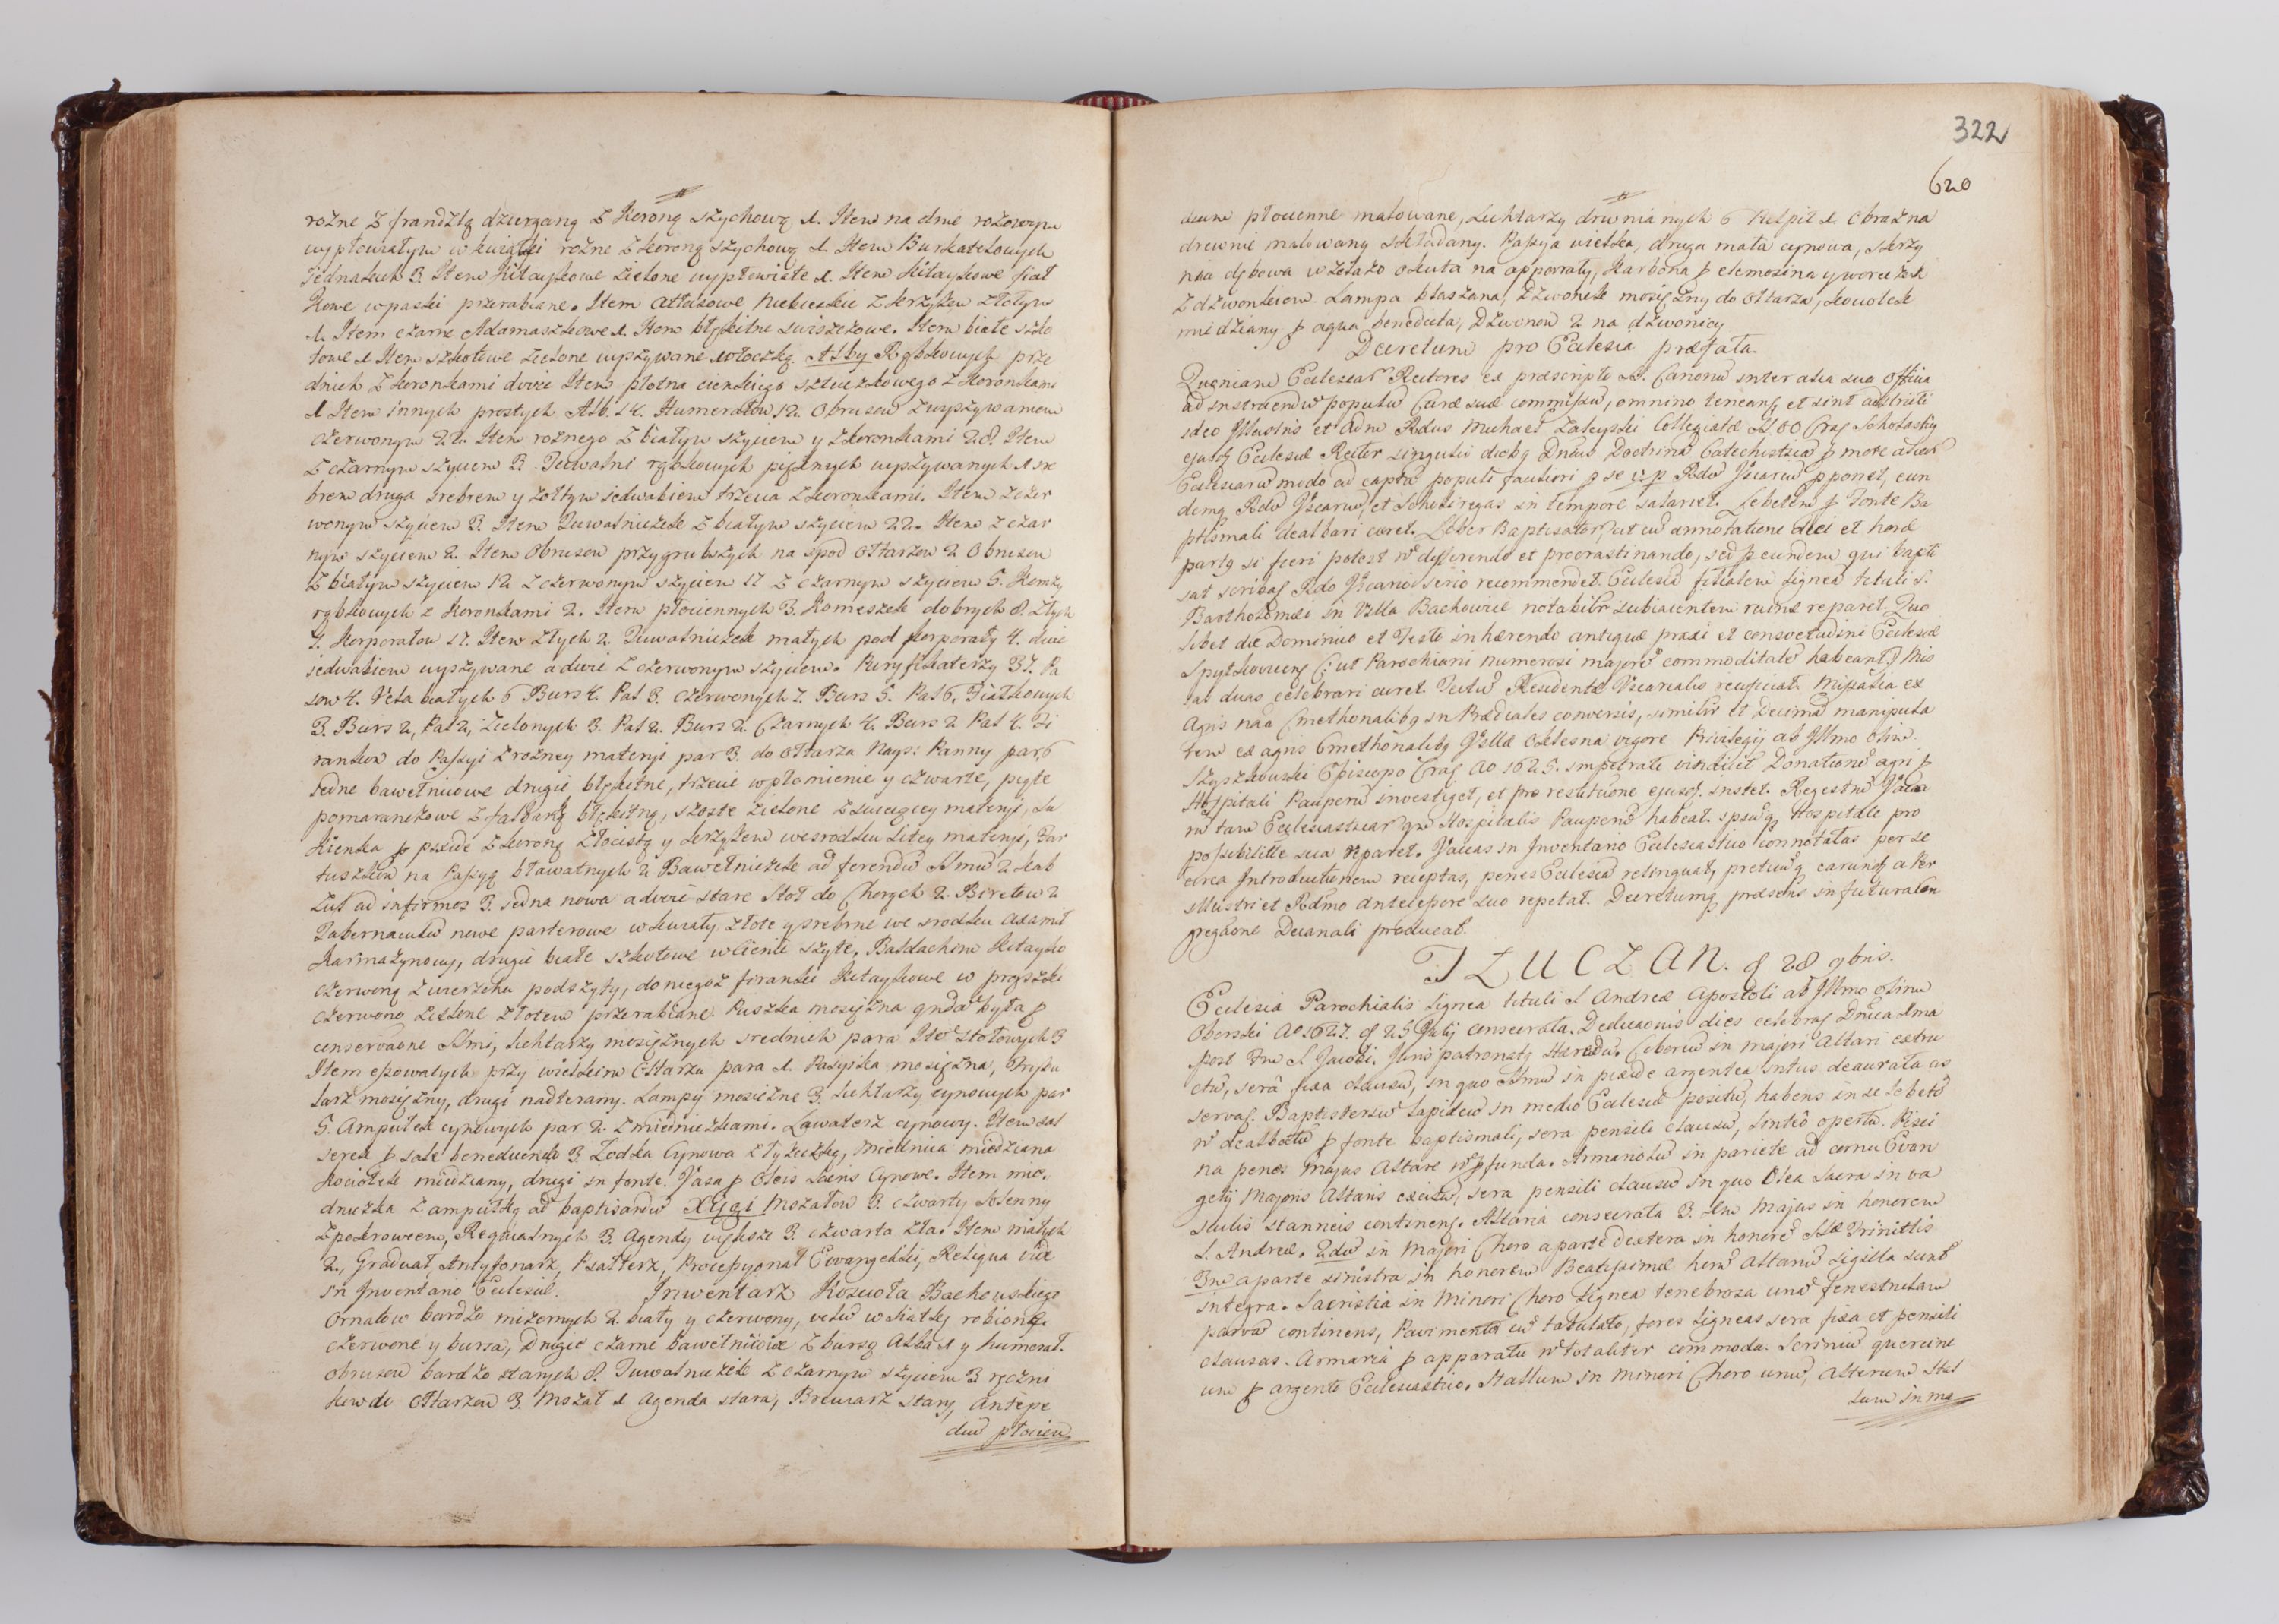 rożne z frandzlą dzierganą z Koroną szychową 1. Item na dnie rożowym
wypłowiałym w kwiatki rożne z koroną szychową 1. Item Burkatelowych
Jednakich 3 Item Kitaykowe zielone wypłowiałe 1. Item Kitaykowe fiał
kowe w paski przerabiane. Item Atłasowe Niebieskie z krzyżem złotym
1. Item czarne Adamaszkowe 1. Item błękitne 1. Item białe szko
towe 1 Item szkotowe zielone wyszywane włoczką. Alby Rąbkowych prze
dnich z koronkami dwie Item płotna cienkiego sztuczkowego z Koronkami
1 Item innych prostych Alb. 14. Humerałow 12. Obrusow z wyszywaniem
czerwonym 22. Item rożnego z białym szyciem y z koronkami 28. Item
z czarnym szyciem 3 Tuwalni rąbkowych pięknych wyszywanych 1 sre
brem druga srebrem y żołtym jedwabiem trzecia z koronkami. Item z czer
wonym szyciem 3 Item Tuwalniczek z białym szyciem 22. Item z czar
nym szyciem 2. Item Obrusow przygrubszych na spod Ołtarzow 2 Obrusow
z białym szyciem 12 z czerwonym szyciem 17 z czarnym szyciem 5. Komży
rąbkowych z Koronkami 2. Item płociennych 3. Komeszek dobrych 8 złych
7. Korporałow 17. Item złych 2. Tuwalniczek małych pod korporały 4. dwie
jedwabiem wyszywane a dwie z czerwonym szyciem. Puryfikaterzy 37. Pa
sow 4. Vela białych 6 Burs 4. Pal 3. czerwonych 7. Burs 5. Pal 6. Fiałkowych
3. Burs 2, Pal 2, Zielonych 3. Pal 2. Burs 2. Czarnych 4. Burs 2 Pal 4. Fi
ranek do Passyi z rożney materyi par 3. do Ołtarza Nays: Panny par 6
Jedne bawełnicowe drugie błękitne, trzecie w płomienie y czwarte, piąte
pomaranczowe z falbaną błękitną, szoste zielone z swiecącey materyi, Su
kienka p pixide z koroną złocistą y krzyżem we srodku litey materyi, Far
tuszkow na Passyą bławatnych 2 Bawełniczek ad ferendu Ssmu 2 kab
zul ad infirmos 3. jedna nowa a dwie stare Stoł do Chorych 2. Biretow 2
Tabernaculu nowe parterowe w kwiaty złote y srebrne we srodku axamit
karmazynowy, drugie białe szkotowe w cienie szyte. Baldachim Kitayko
czerwoną z wierzchu podszyty, do niegoż firanki Kitaykowe w prążki
czerwono zielone złotem przerabiane. Puszka mosiężna była p
conservaone Ssmi, Lichtarzy mosiężnych srednich para Ite stołowych 3
Item epowałych przy wielkim Ołtarzu para 1. Pasyjka mosiężna, Trybu
larz mosiężny, drugi nadłamany. Lampy mosiężne 3. Lichtarzy cynowych par
5. Ampułek cynowych par 2. z miedniczkami. Lawaterz cynowy. Item sol
serea p sale benedicendo 3 Łodka Cynowa z łyżeczką, Miednica miedziana
Kociołek miedziany, drugi in fonte. Vasa p Oleis Sacris Cynowe. Item mie
dniczka z ampułką ad baptisandu Xięgi Mszałow 3. czwarty solenny
z pokrowcem, Requialnych 3. Agendy większe 3. czwarta zła. Item małych
2., Graduał, Antyfonarz, Psałterz, Processyonał Ewangeliki, Reliqua vide
in Inventario Ecclesiæ. Inwentarz Koscioła Bachowskiego
Ornatow bardzo mizernych 2. biały y czerwony, velu w siatkę robione
czerwone y bursa, Drugie czarne bawełnicze z bursą Alba 1 y humerał.
obrusow bardzo starych 8. Tuwalniczek z czarnym szyciem 3 ręczni
kow do Ołtarzow 3. Mszał 1 Agenda stara, Brewiarz stary, Antepe
diu płocien

322
620
dium płocienne malowane, Lichtarzy drwnianych 6 Pulpit 1. Obraz na
drewnie malowany składany. Passyja wielka, druga mała cynowa, skrzy
nia dębowa w żelazo okuta na apparaty, Karbona p elemosina y woreczek
z dzwonkiem. Lampa blaszana, Dzwonek mosiężny do Ołtarza, Kociołek
miedziany p aqua benedicta, Dzwonow 2 na dzwonicy
Decretum pro Ecclesia præfata.
Quoniam Ecclesiar Rectores ex præscripto SS. Canonu inter alia sua Officia
ad instruendu populu Curæ suæ commissu, omnino teneant et sint adstricti
ideo Illustris et Adm Rdus Michael Załuski Collegiatæ SS OO Crac Scholasty
ejusdq Ecclesiæ Rector singulis diebq Dnicis Doctrina Catechistica p more aliar
Ecclesiaru modo ad captu populi faciliori p se vp Rdu Vicariu pponet, eun
demq Rdu Vicariu et Scholiregas in tempore salariet. Lebetem p Fonte Ba
ptismali dealbari curet. Liber Baptisator, ut cu annotatione diei et horæ
partq si fieri potest nō differendo et procrastinando, sed p eundem qui bapti
sat scribat Rdo Vicario serio recommendet. Ecclesia filialem ligneā tituli S.
Bartholomæi in Villa Bachowice notabilr subiacentem ruinæ reparet. Quo
libet die Dominico et Festo inhærendo antiquæ praxi et consvetudini Ecclesiæ
Spytkovicens (: ut Parochiani numerosi majore commoditate habeant:) Mis
sas duas celebrari curet. Tectu Residentiæ Vicarialis reficiat. Missalia ex
Agris nāa Cmethonalibq in Prædiales conversis, similir et Decima manipula
rem ex agris Cmethonalibq Villæ vigore Privilegij ab Illmo olim
Szyszkowski Episcopo Crac Ao 1625. impetrati vindicet Donatione agri p
Hospitali Pauperu investiget, et pro restitutione ejusd. instet. Regestru Vacca
ru tam Ecclesiasticar qm Hospitalis Pauperu habeat. ipsuq Hospitale pro
possibilitte sua reparet. Vaccas in Inventario Ecclesiastico connotatas per se
circa Introductionem receptas, penes Ecclesia relinquat, pretiuq earund a Per
illustri et Rdmo Antecessore suo repetat. Decretumq præsens in futura Con
gregaone Decanali producat.
TŁUCZAN. d 28 9bris.
Ecclesia Parochialis lignea tituli S Andreæ Apostoli ab Illmo olim
Oborski Ao 1627. d 25 Julij consecrata. Dedicaonis dies celebrat Dnica Ima
post Fm S Jacobi. Juris patronatq Hæredu. Ciboriu in majori Altari extru
ctu, serâ fixa clausu, in quo Ssmu in pixide argentea intus deaurata as
servat. Baptisteriu lapideu in medio Ecclesiæ positu, habens in se lebetē
nō dealbatu p fonte baptismali, sera pensili clausu, linteo opertu. Pisci
na penes majus Altare nō pfunda. Armariolu in pariete ad cornu Evan
gelij Majoris Altaris excisu, sera pensili clausu in quo Olea Sacra in va
sculis stanneis continent. Altaria consecrata 3. Imu Majus in honorem
S. Andreæ. 2du in Majori Choro a parte dextera in honore Ssæ Trinittis
3tm a parte sinistra in honorem Beatissimæ horu Altariu sigilla sunt
integra. Sacristia in Minori Choro lignea tenebrosa unā fenestrellam
parva continens, Pavimento cu tabulato, fores ligneas sera fixa et pensili
clausas. Armaria p apparatu nō totaliter commoda. Scriniu quercine
um p argento Ecclesiastico. Stallum in minori Choro unu, alterum Stal
lum in ma